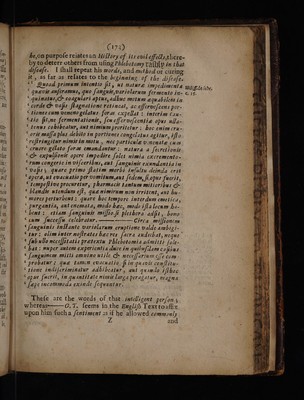 (171)
he, on purpose relates an History of its evil effects, there-
by to deterr others from using Phlebotomy rashly in that
disease. I shall repeat his words, and method of curing
it, as far as relates to the beginning of the disease.
Quod primum intentio sit, ut natura impedimenta
quævis auferamus, quo sanguis, variolarum fermento in-
quinatus, & coagulari aptus, adhuc motum æquabilem in
corde & vasis stagnationi retineat, ac effervescens por-
tiones cum veneno gelatas foras expellat; interim cau-
tio sit, ne fermentationis, seu effervescentia opus ulla-
tenus cohibeatur, aut nimium proritetur: hoc enim cru-
oris massa plus debito in portiones congelatas agitur, isto
restringitur nimis in motu, nec particulæ venenatæ cum
cruore gelato foras amandantur: natura a secretionis
& expulsionis opere impedire solet nimia excremento-
rum congerie in visceribus, aut sanguinis exundantia in
vasis; quare prima statim morbi insultu deinda erit
opera, ut evacuatio per vomitum, aut sedem, si opus fuerit,
tempestive procuretur, pharmacis tantum mitioribus &
blandis utendum est, quæ nimirum non irritent, aut hu-
mores perturbent: quare hoc tempore interdum emetica,
purgantia, aut enemata, modo hæc, modo ista locum ha-
bent; etiam sanguinis missio si plethora adsit, bono
cum successu celebratur. —— Circa missionem
sanguinis instante variolarum eruptione valde ambigi-
tur; olim inter nostrates hæc res sacra audiebat, neque
sub ulla necessitatis prætextu Phlebotomia admitti sole-
bat: nuper autem experientia duce in quibusdam casibus
sanguinem mitti omnino utile & necessarium esse com-
probatur: quæ tamen evacuatio, si in quavis constitu-
tione indiscriminatim adhibeatur, aut quando isthoc
opus fuerit, in quantitate nimis larga peragatur, magna
sæpe incommoda exinde sequuntur.
These are the words of that intelligent person;
whereas —— G. T. seems in the English Text to fix
upon him such a sentiment as if he allowed commonly
Z and